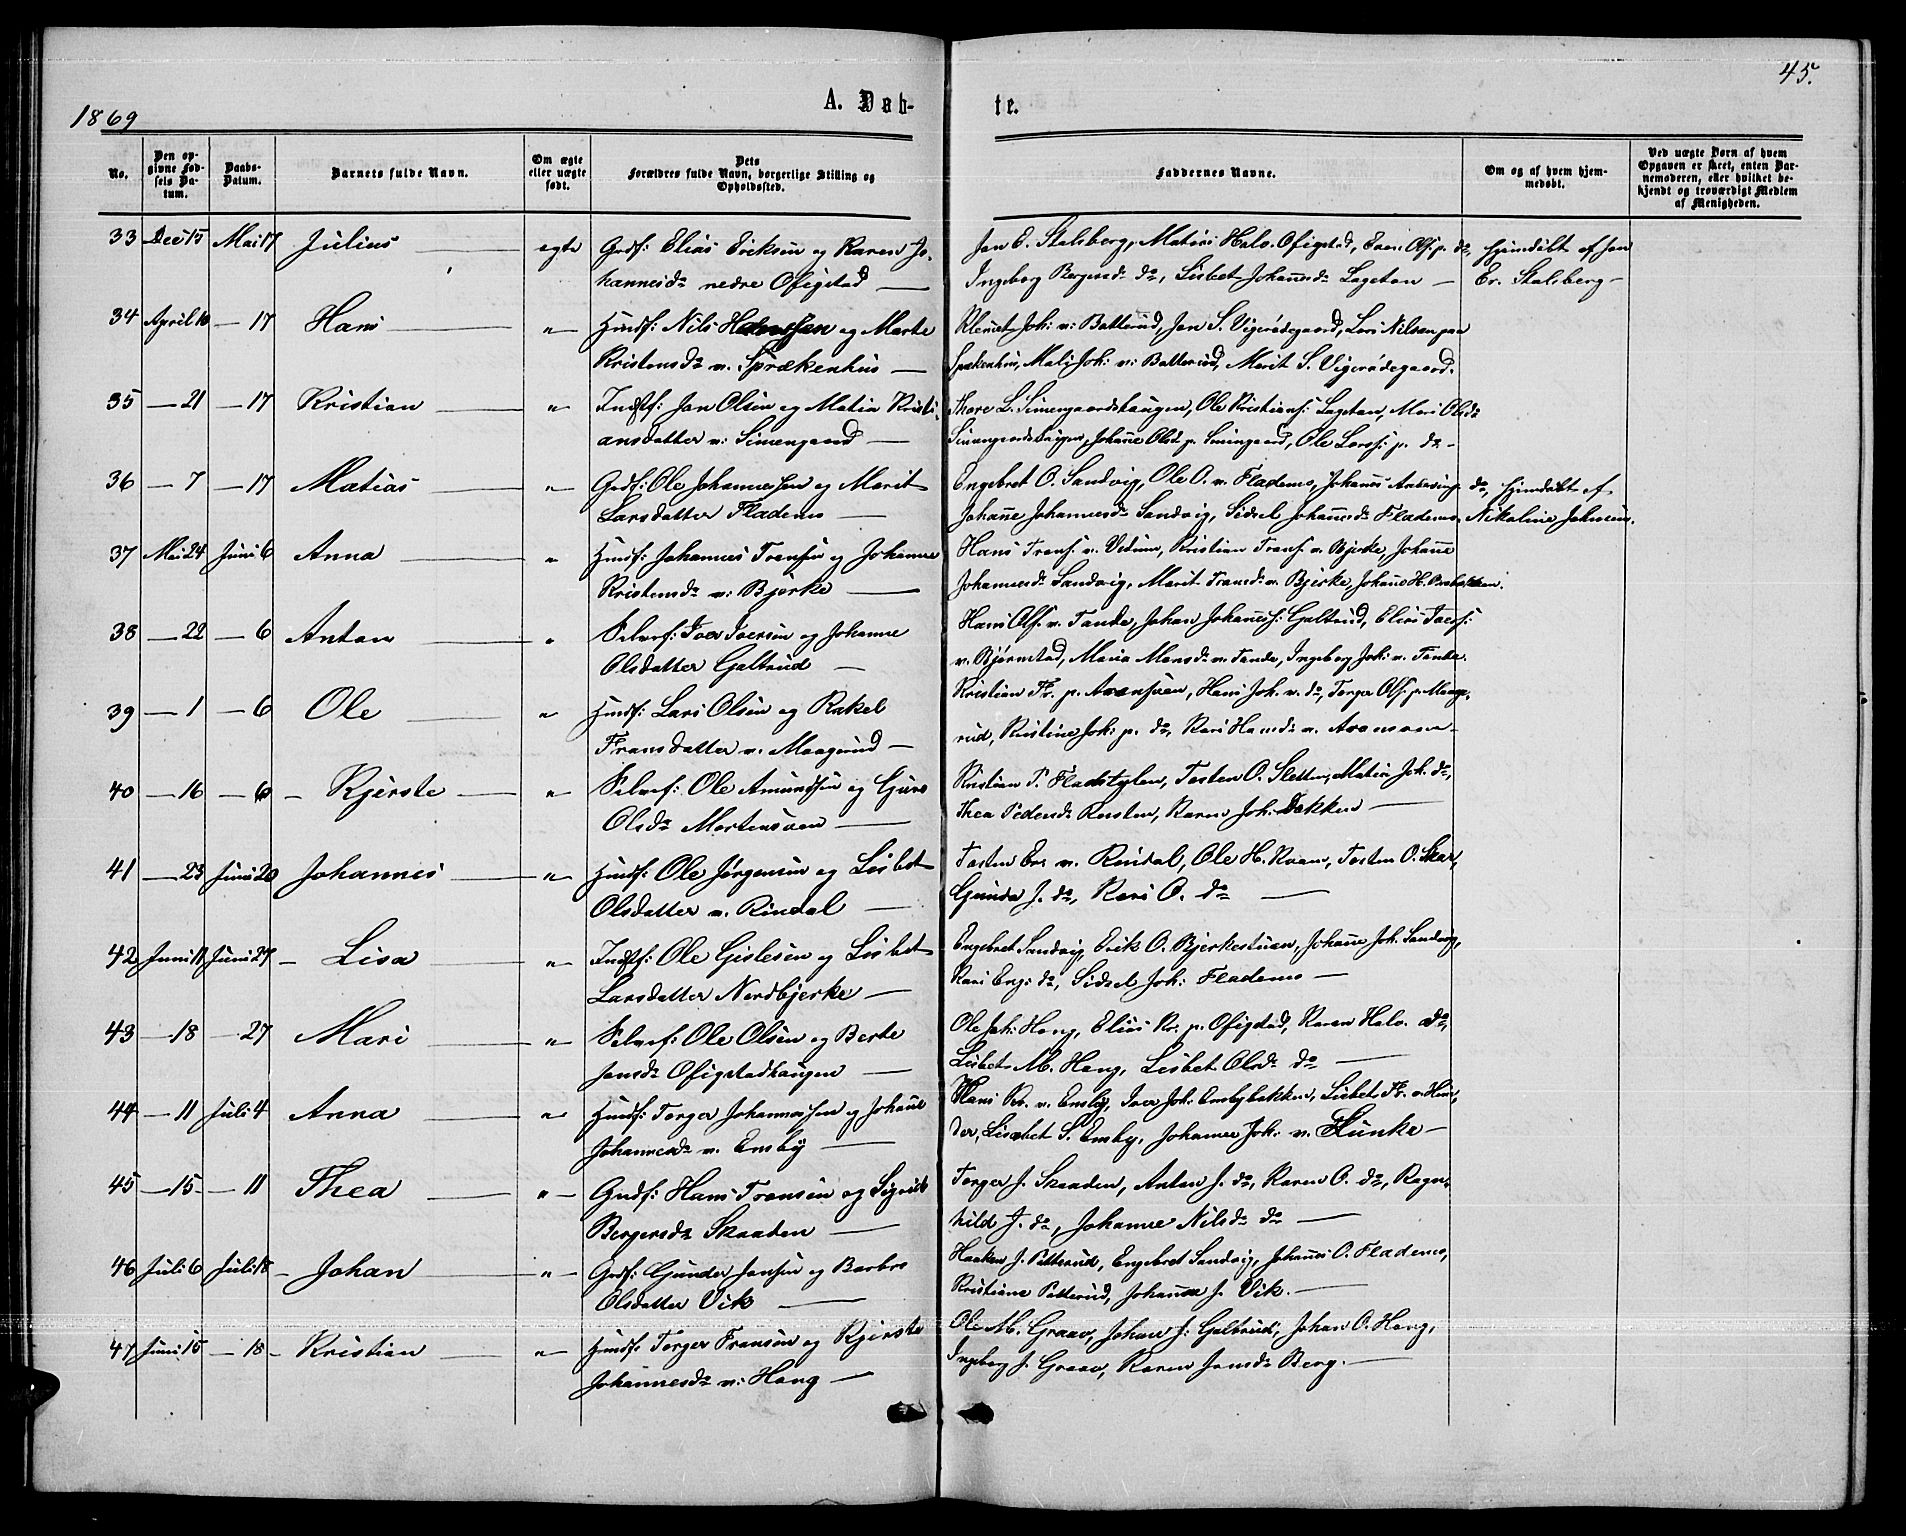 1869
A. Døb-
te.
45.
No.
Den op-
givne Fød-
sels Da-
tum.
Daabs-
Datum.
Barnets fulde Navn.
Om ægte
eller uægte
født.
Dets
Forældres fulde Navn, borgerlige Stilling og
Opholdssted.
Faddernes Navne.
Om og af hvem hjem-
medøbt.
Ved uægte Børn af hvem
Opgaven er skeet, enten Bar-
nemoderen, eller hvilket be-
kjendt og troværdigt Medlem
af Menigheden.
33 Dec 15 Mai 17 Julius ægte Grdf: Elias Eriksen og Karen Jo-
hannesdr nedre Ofigstad
Jon E. Stalsberg, Matias Halv. Ofigstad, Even Ols. p. do,
Ingeborg Bergersdr do, Lisbet Johansdr Lageton
Hjemdøbt af Jon
Er. Stalsberg
34 April 10 17 Hans " Husmf: Nils Hanssen og Marte
Kristensdr v. Sprækenhus
Klemet Joh: v: Batterud, Jon S. Vigerødegaard, Lars Nilsen paa
Spækenhus, Mali Joh: v: Batterud, Marit S. Vigerødegaard.
35 21 17 Kristian " Indstf: Jon Olsen og Matia Kristi-
ansdatter v: Simengaard
Thore L. Simengaardshaugen, Ole Kristians: Lageton, Mari Olsdr
Simengaardshaugen, Johanne Olsd p. Simengaard, Ole Larss: p. do
36 7 17 Matias " Grdf: Ole Johannessen og Marit
Larsdatter Flademo
Engebret O. Sandvig, Ole O. v. Flademo, Johannes Andersen p. do,
Johanne Johannesdr Sandvig, Sidsel Johannesdr Flademo
Hjemdøbt af
Nikoline Johnsen.
37 Mai 24 Juni 6 Anna " Husmf: Johannes Fransen og Johanne
Kristensdr v: Bjørke
Hans Frans. v. Vedum, Kristian Frans. v. Bjerke, Johanne
Johannesdr Sandvig, Marit Fransdr v. Bjerke, Johanne H.
38 22 6 Anton " Selvef: Iver Iversen og Johanne
Olsdatter Galtrud
Hans Ols. v. Tande, Johan Johannes: Galtrud, Elias Ivers:
v. Bjørnstad, Maria Monsdr v. Tande, Ingeborg Joh: v. Tande.
39 1 6 Ole " Husmf: Lars Olsen og Rakel
Fransdatter v. Maagerud
Kristian Fr. p. Aaensveen, Hans Joh. v. do, Torger Ols. p. Maage-
rud, Kristine Joh: p. do, Kari Hansdr v. Aaensveen
40 16 6 Kjerste " Selvef: Ole Amundsen og Guro
Olsdr Mortensveen
Kristian P. Fladstylen, Tosten O. Sletten, Matia Joh. do,
Thea Pedersdr Rusten, Karen Joh: Bakken
41 23 Juni 20 Johannes " Husmf: Ole Jørgensen og Lisbet
Olsdatter v. Rindal
Tosten Er. v. Rindal, Ole H. Kvam, Tosten O. Skar,
Gunda J. do, Kari O. do
42 Juni 11 Juni 27 Lisa " Indstf: Ole Gislesen og Lisbet
Larsdatter Nordbjerke
Engebret Sandvig, Erik O. Bjerkestuen, Johanne Joh. Sandvig,
Kari Eng: do, Sidsel Joh: Flademo
43 18 27 Mari " Selvef: Ole Olsen og Berte
Jonsdr Ofigstadhaugen
Ole Joh: Haug, Elias Kr. p. Ofigstad, Karen Halv. do,
Lisbet M. Haug, Lisbet Olsdr do
44 11 Juli 4 Anna " Husmf: Torger Johannessen og Johanne
Johannesdr v. Ensby
Hans Kr. v. Ensby, Iver Joh: Ensbybakken, Lisbet Fr. v. Hin-
der, Lisebet S. Ensby, Johanne Joh: v. Flunke
45 15 11 Thea " Grdf: Hans Fransen og Sigrid
Bergersdr Skaaden
Torger J. Skaaden, Anton J. do, Karen O. do, Ragn-
hild J. do, Johanne Nilsdr do
46 Juli 6 Juli 18 Johan " Grdf: Gunder Jonsen og Barbro
Olsdatter Vik
Haaken J. Putterud, Engebret Sandvig, Johannes O. Flademo,
Kristiane Putterud, Johanne J. Vik.
47 Juni 15 18 Kristian " Husmf: Torger Fransen og Kjerste
Johannesdr v: Haug
Ole M. Graav, Johan J: Galtrud, Johan O. Haug,
Ingeborg J. Graav, Karen Jonsdr Berg.